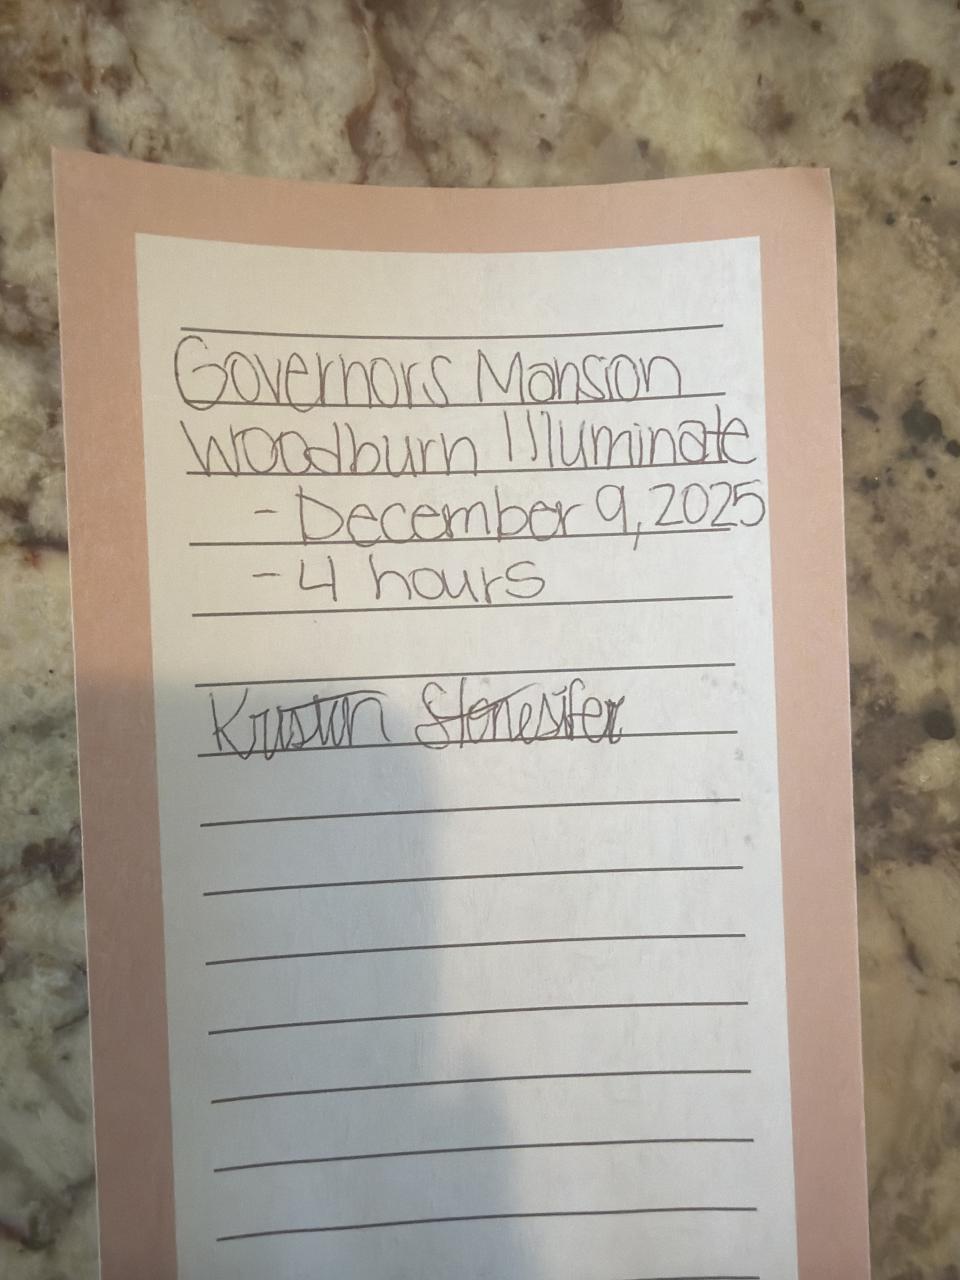 Governors Manson
Woodburn Illuminate
- December 9, 2025
- 4 hours
Kristin Stonesifer